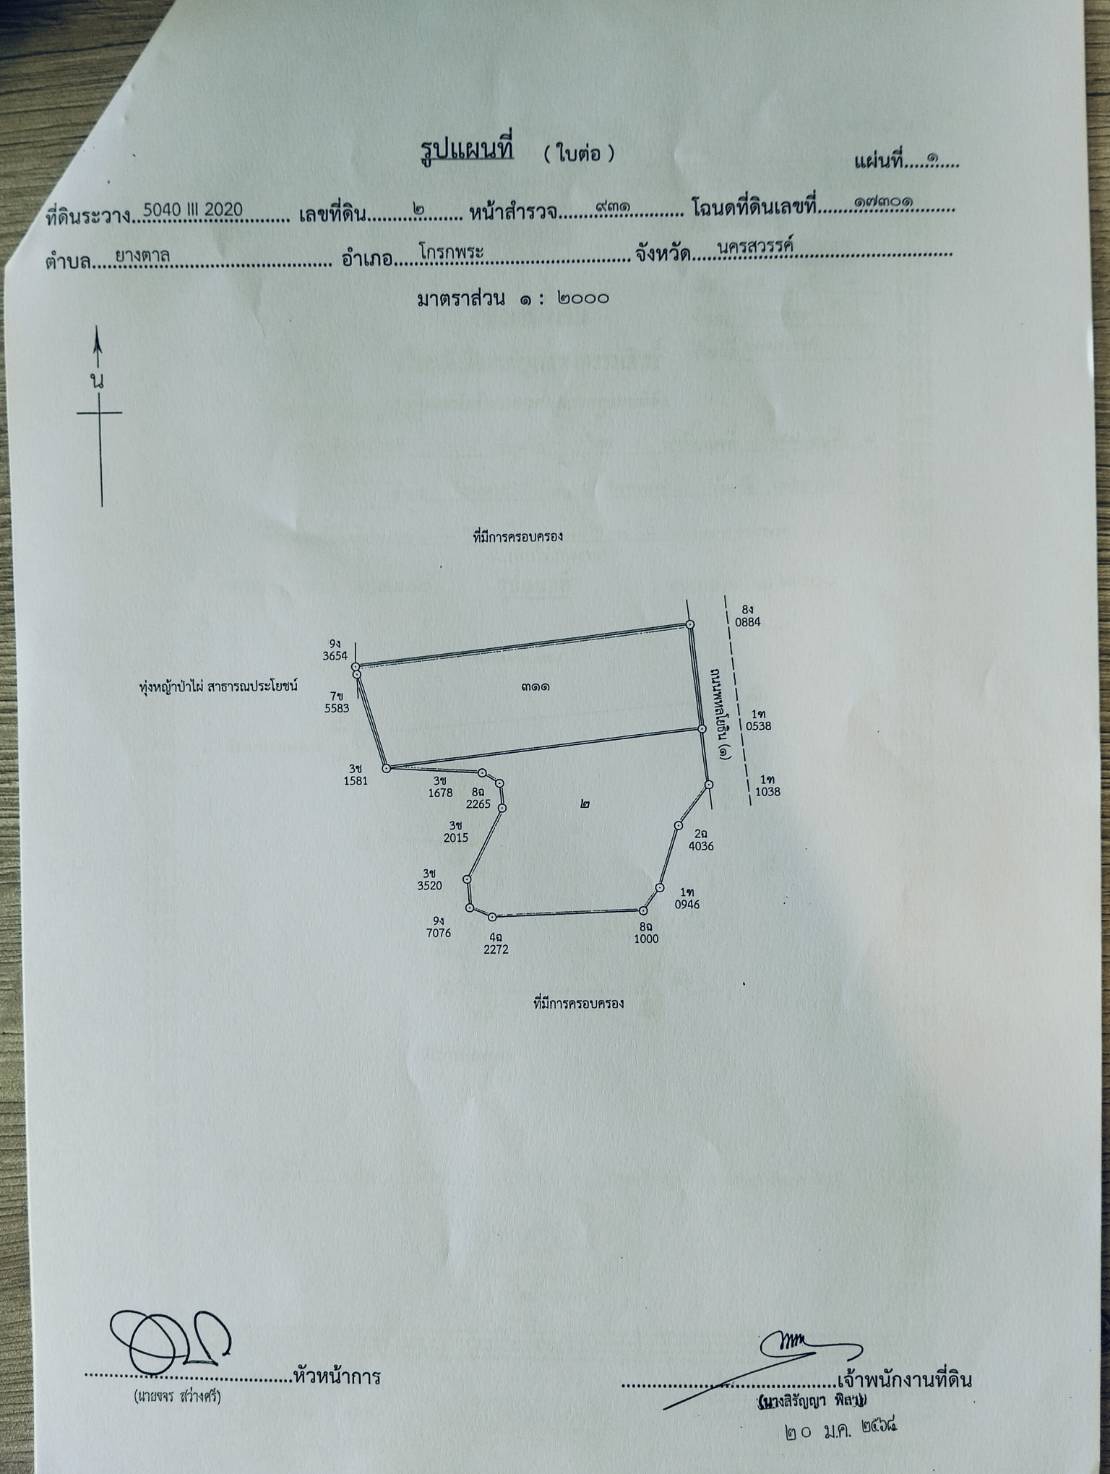 รูปแผนที่ ( ใบต่อ )
แผ่นที่.....๑.....
ที่ดินระวาง...5040 III 2020......... เลขที่ดิน.........๒........ หน้าสำรวจ.......๙๓๑........... โฉนดที่ดินเลขที่.......๑๗๓๐๑........
ตำบล....ยางตาล.............................. อำเภอ....โกรกพระ............................. จังหวัด.....นครสวรรค์..............................
มาตราส่วน ๑ : ๒๐๐๐
น
ที่มีการครอบครอง
8ง
0884
9ง
3654
ทุ่งหญ้าป่าไผ่ สาธารณประโยชน์
๓๑๑
7ข
5583
ถนนพหลโยธิน (๑)
1ฑ
0538
3ช
1581
3ช
1678
8ฉ
2265
1ฑ
1038
๒
3ช
2015
2ฉ
4036
3ช
3520
1ฑ
0946
9ง
7076
4ฉ
2272
8ฉ
1000
ที่มีการครอบครอง
........................................หัวหน้าการ
........................................เจ้าพนักงานที่ดิน
(นายขจร สว่างศรี)
(นางสิรัญญา
๒๐ ม.ค. ๒๕๖๘